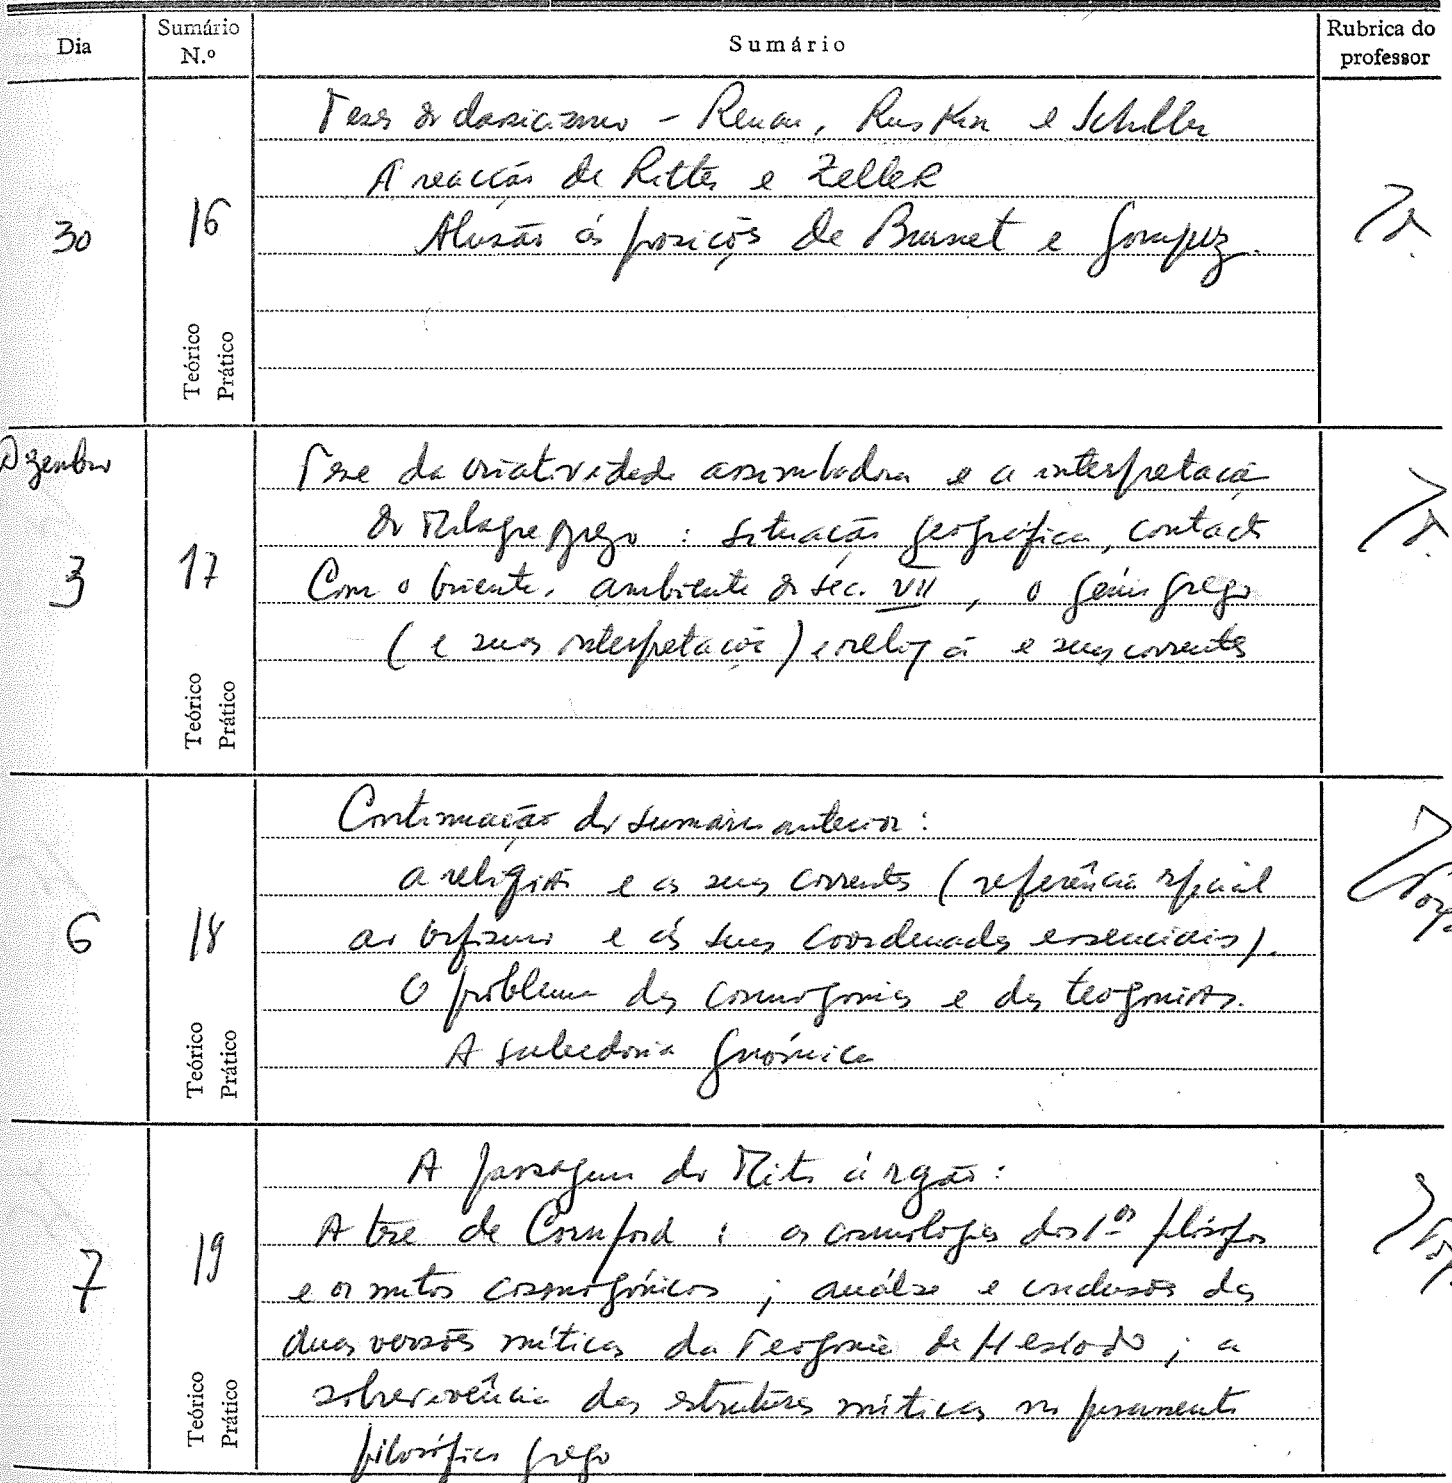 Dia
Sumário N.º
Sumário
Rubrica do professor
30
16
Teórico
Prático
Teses do classicismo - Renan, Ruskin e Schiller
A reacção de Ritter e Zeller
Alusão às posições de Burnet e Gomperz.
Dezembro
3
17
Teórico
Prático
Tese da criatividade assimiladora e a interpretação
do Milagre grego : situação geográfica, contacto
Com o Oriente, ambiente do séc. VII, o génio grego
(e suas interpretações) e religião e suas correntes
6
18
Teórico
Prático
Continuação do sumário anterior :
a religião e as suas correntes (referência especial
ao orfismo e às suas coordenadas essenciais).
O problema das cosmogonias e das teogonias.
A sabedoria gnómica
7
19
Teórico
Prático
A passagem do Mito à razão :
A tese de Cornford : as cosmologias dos 1ºs filósofos
e os mitos cosmogónicos ; análise e conclusões das
duas versões míticas da Teogonia de Hesíodo ; a
sobrevivência das estruturas míticas no pensamento
filosófico grego